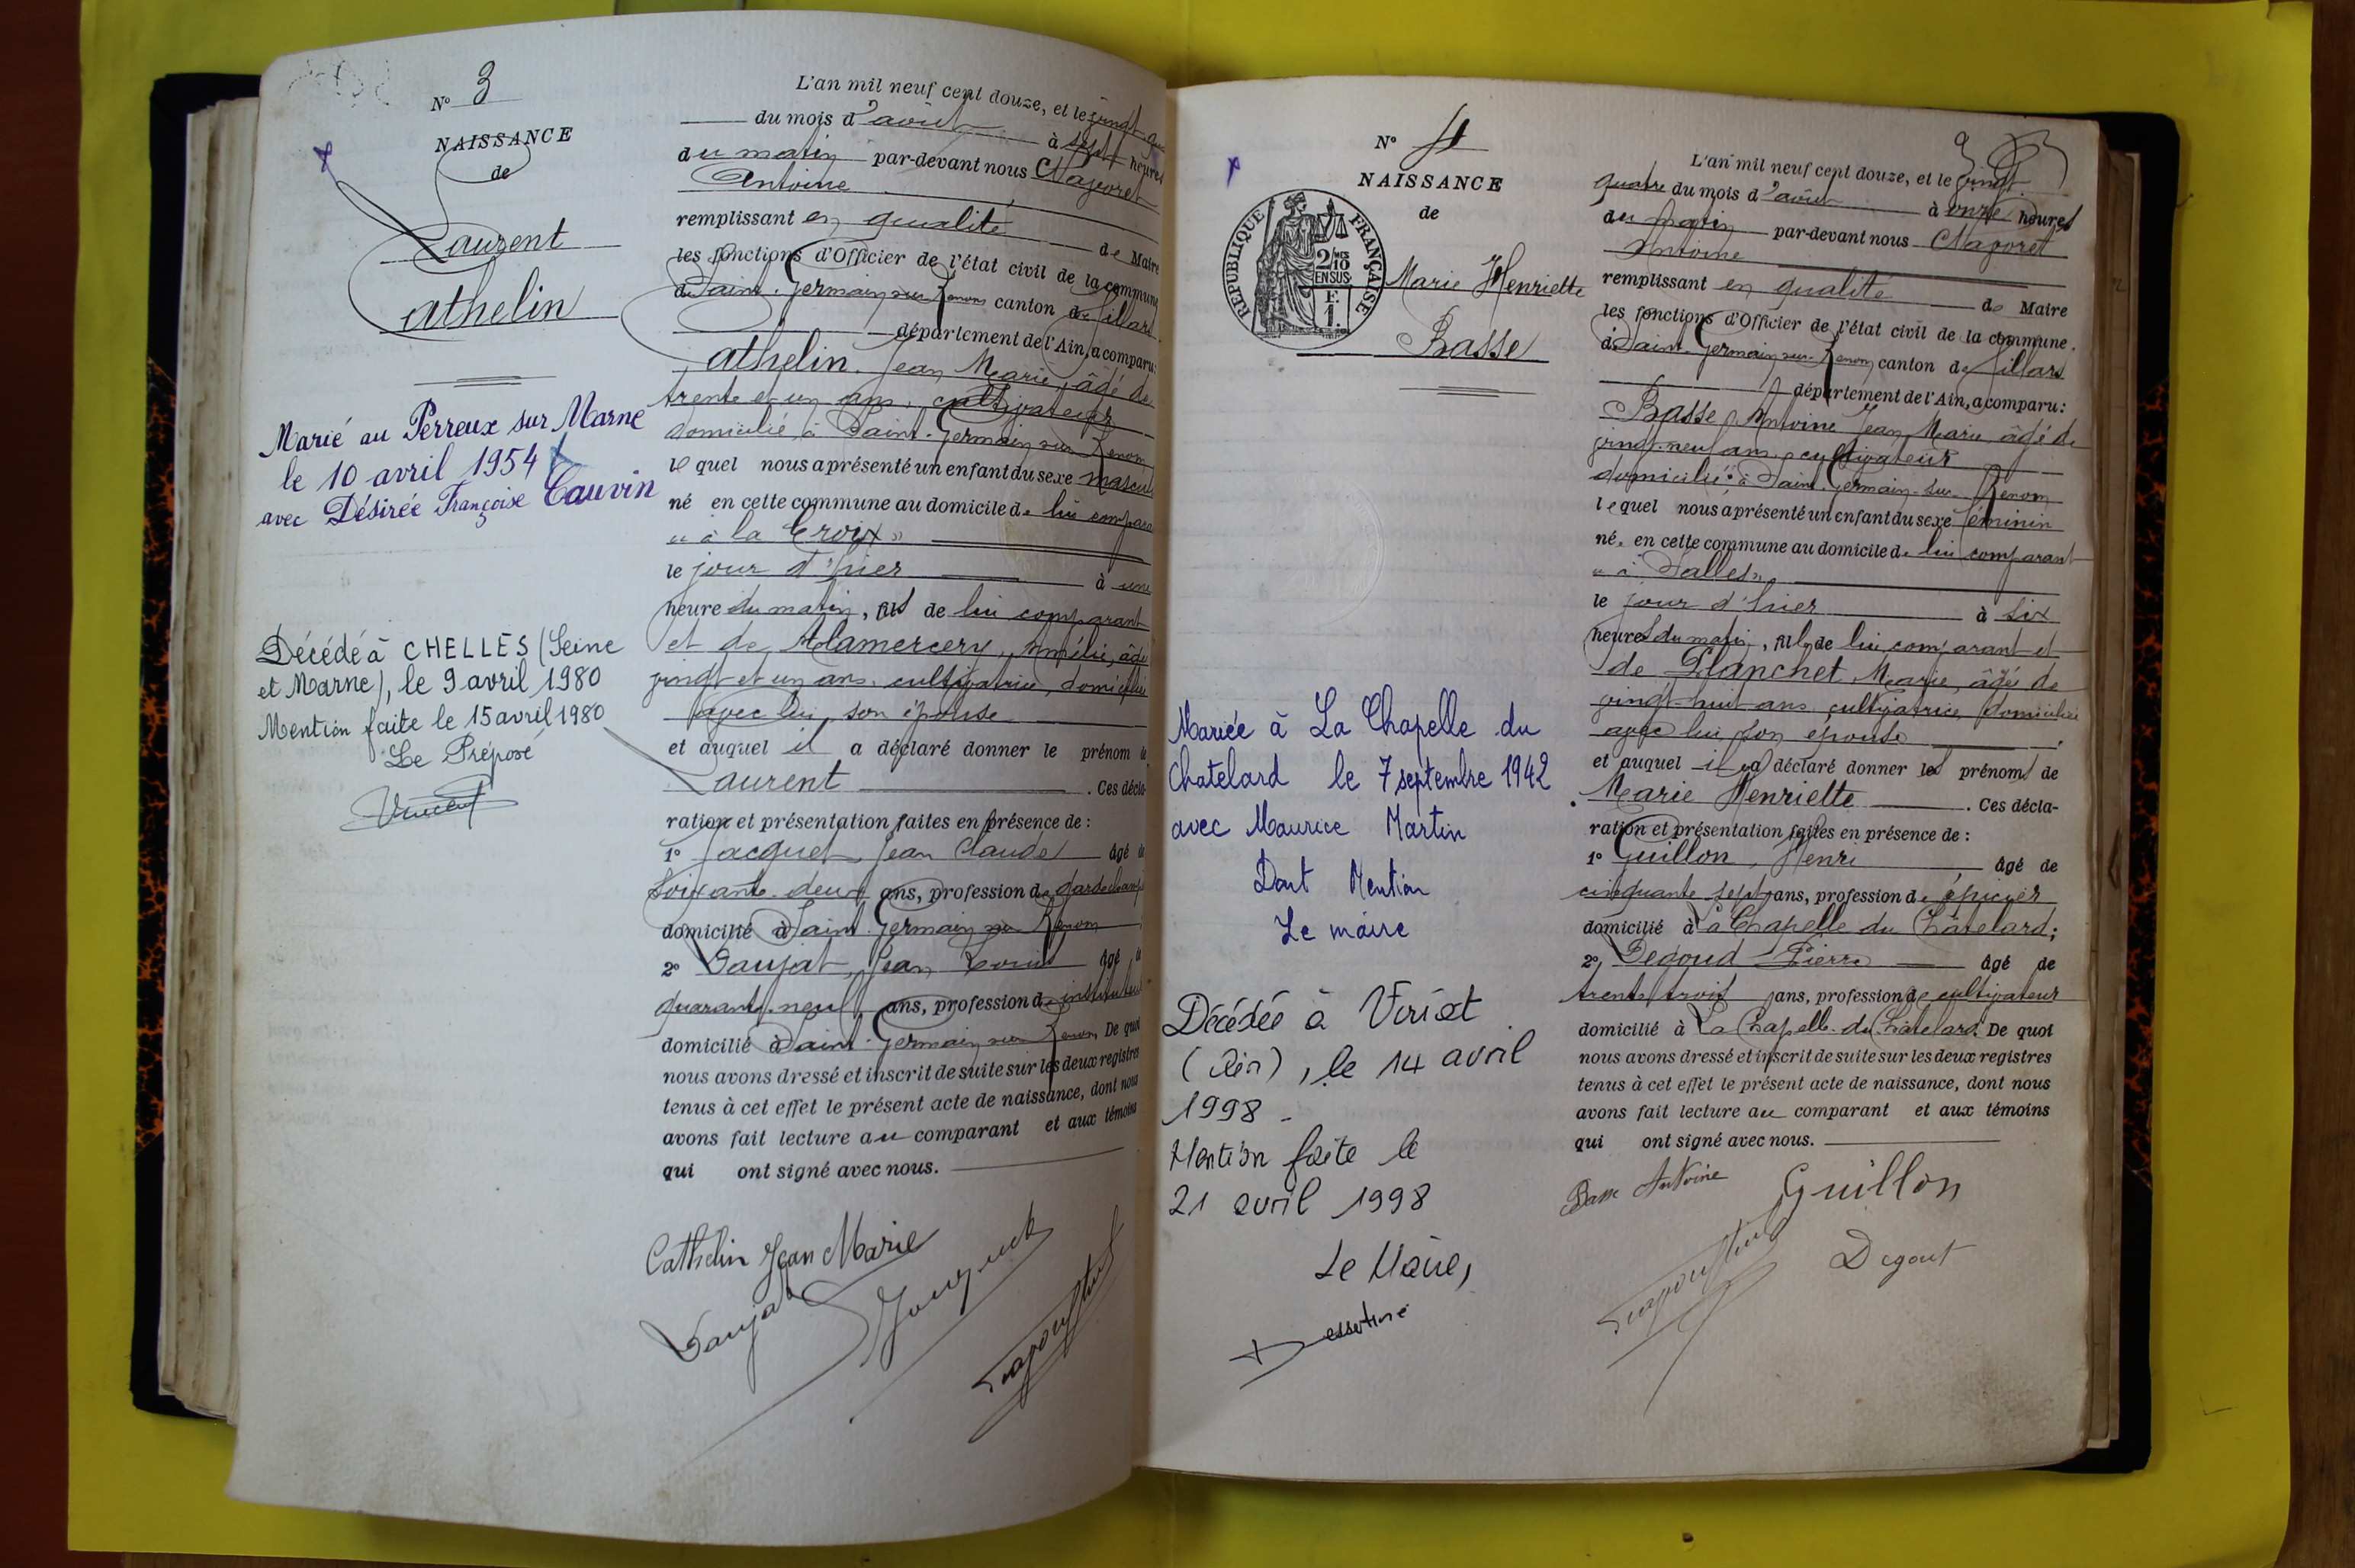 N° 3
NAISSANCE
de
Laurent
Cathelin
Marié au Perreux sur Marne
le 10 avril 1954
avec Désirée Françoise Cauvin
Décédé à CHELLES (Seine
et Marne), le 9 avril 1980
Mention faite le 15 avril 1980
Le Préposé
L'an mil neuf cent douze, et le vingt
du mois d'août à sept heures
du matin par-devant nous
Antoine
remplissant en qualité de Maire
les fonctions d'Officier de l'état civil de la commune
de Saint-Germain sur Renom canton de Villars
département de l'Ain, a comparu:
Cathelin Jean Marie, âgé de
trente et un ans, cultivateur
domicilié à Saint-Germain sur Renom
lequel nous a présenté un enfant du sexe
né en cette commune au domicile de lui
"à la Croix"
le jour d'hier à une
heure du matin, fils de lui comparant
et de Alamercery, Amélie, âgée
vingt et un ans, cultivatrice, domiciliée
avec lui, son épouse
et auquel il a déclaré donner le prénom de
Laurent . Ces décla-
ration et présentation faites en présence de :
1° Jacquet, Jean Claude âgé de
soixante deux ans, profession de
domicilié à Saint-Germain sur Renom
2° Saujat, Jean Louis âgé de
quarante neuf ans, profession d'instituteur
domicilié à Saint-Germain sur Renom. De quoi
nous avons dressé et inscrit de suite sur les deux registres
tenus à cet effet le présent acte de naissance, dont nous
avons fait lecture au comparant et aux témoins
qui ont signé avec nous.
Cathelin Jean Marie
Saujat
N° 4
NAISSANCE
de
RÉPUBLIQUE FRANÇAISE
2/10 MES
EN SUS
F.
1.
Marie Henriette
Basse
Mariée à La Chapelle du
Chatelard le 7 septembre 1942
avec Maurice Martin
Dont Mention
Le maire
Décédée à Viriat
(Ain), le 14 avril
1998 -
Mention faite le
21 avril 1998
Le Maire,
L'an mil neuf cent douze, et le vingt
quatre du mois d'août à onze heures
du matin par-devant nous
Antoine
remplissant en qualité de Maire
les fonctions d'Officier de l'état civil de la commune
de Saint-Germain-sur-Renom canton de Villars
département de l'Ain, a comparu:
Basse Antoine Jean Marie âgé de
vingt-neuf ans, cultivateur
domicilié à Saint-Germain-sur-Renom
lequel nous a présenté un enfant du sexe féminin
né en cette commune au domicile de lui comparant
le jour d'hier à six
heures du matin, fille de lui comparant et
de Planchet Marie, âgée de
vingt-huit ans cultivatrice, domiciliée
avec lui son épouse
et auquel il a déclaré donner les prénoms de
Marie Henriette . Ces décla-
ration et présentation faites en présence de :
1° Guillon, Henri âgé de
cinquante sept ans, profession d'épicier
domicilié à La Chapelle du Châtelard;
2° Degoud Pierre âgé de
trente trois ans, profession de cultivateur
domicilié à La Chapelle du Châtelard. De quoi
nous avons dressé et inscrit de suite sur les deux registres
tenus à cet effet le présent acte de naissance, dont nous
avons fait lecture au comparant et aux témoins
qui ont signé avec nous.
Basse Antoine
Guillon
Degout